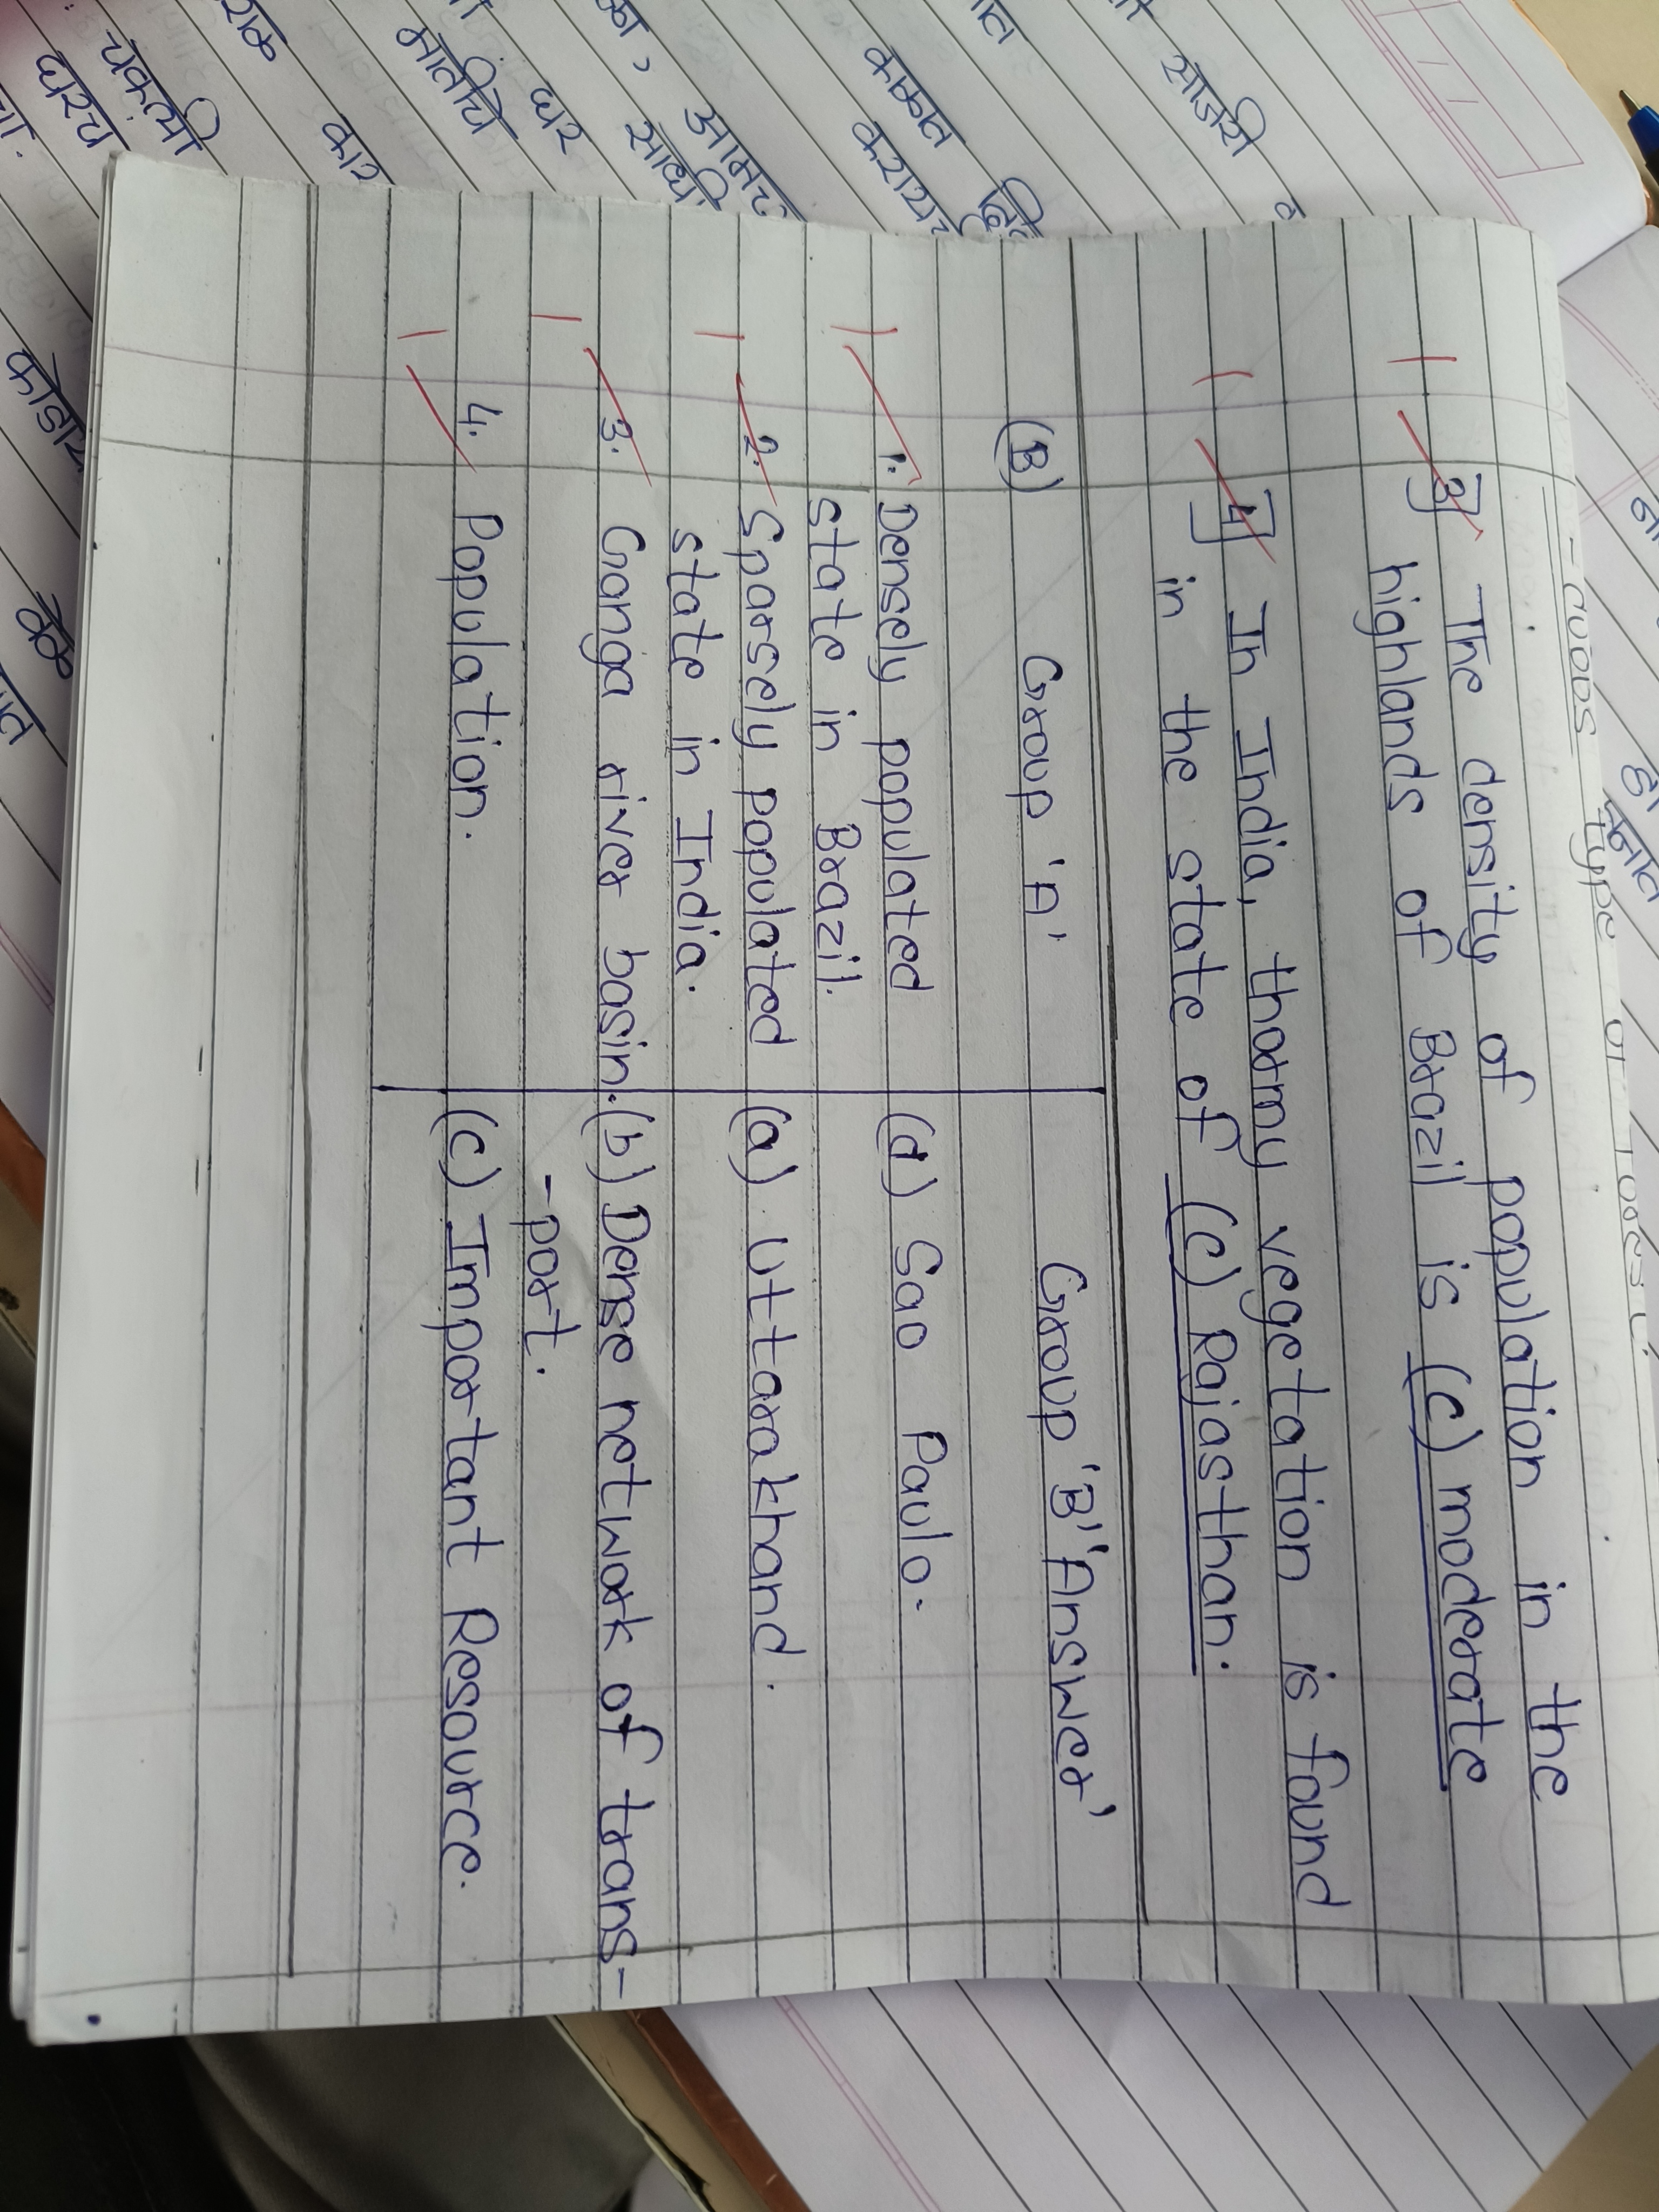 3] The density of population in the
highlands of Brazil is (c) moderate
4] In India, thormy vegetation is found
in the state of (c) Rajasthan.
(B) Group 'A' Group 'B' 'Answer'
1. Densely populated (d) Sao Paulo.
state in Brazil.
2. Sparsely populated (a) Uttarakhand.
state in India.
3. Ganga river basin. (b) Dense network of trans-
-port.
4. Population. (c) Important Resource.
मातीचे
घर
आमच
कळत
साजरी
चकत्यी
घरच